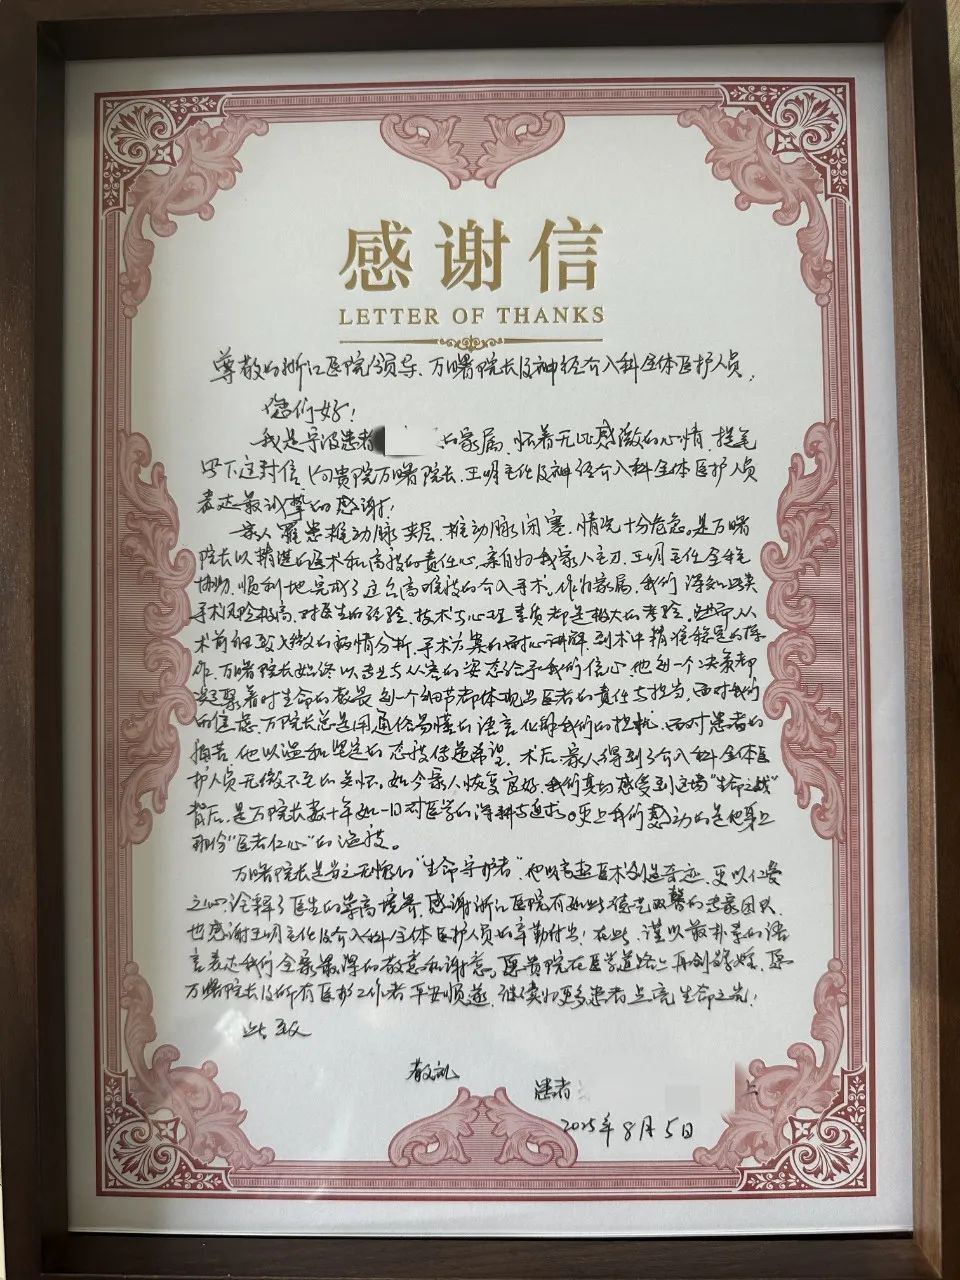 感谢信
LETTER OF THANKS
尊敬的浙江医院领导、万曙院长及神经介入科全体医护人员，
您们好！
我是宁波患者 的家属，怀着无比感激的心情，提笔
写下这封信，向贵院万曙院长、王明主任及神经介入科全体医护人员
表达最诚挚的感谢！
家人罹患椎动脉夹层、椎动脉闭塞，情况十分危急。是万曙
院长以精湛的医术和高度的责任心，亲自为我家人主刀，王明主任全程
协助，顺利地完成了这台高难度的介入手术。作为家属，我们深知此类
手术风险极高，对医生的经验、技术与心理素质都是极大的考验。然而从
术前细致入微的病情分析、手术方案的耐心讲解，到术中精准稳定的操
作，万曙院长始终以专业与从容的姿态给予我们信心，他每一个决策都
凝聚着对生命的敬畏，每一个细节都体现出医者的责任与担当，面对我们
的焦虑，万院长总是用通俗易懂的语言化解我们的担忧，面对患者的
痛苦，他以温和坚定的态度传递希望。术后家人得到了介入科全体医
护人员无微不至的关怀，如今家人恢复良好，我们真切感受到这场“生命之战”
背后，是万院长数十年如一日对医学的深耕与追求。更让我们感动的是他身上
那份“医者仁心”的温度。
万曙院长是当之无愧的“生命守护者”，他以高超医术创造奇迹，更以仁爱
之心诠释了医生的崇高境界，感谢浙江医院有如此德艺双馨的专家团队，
也感谢王明主任及介入科全体医护人员的辛勤付出！在此，谨以最朴素的语
言表达我们全家最深的敬意和谢意。愿贵院在医学道路上再创辉煌，愿
万曙院长及所有医护工作者平安顺遂，继续为更多患者点亮生命之光！
此致
敬礼
患者
2025年8月5日